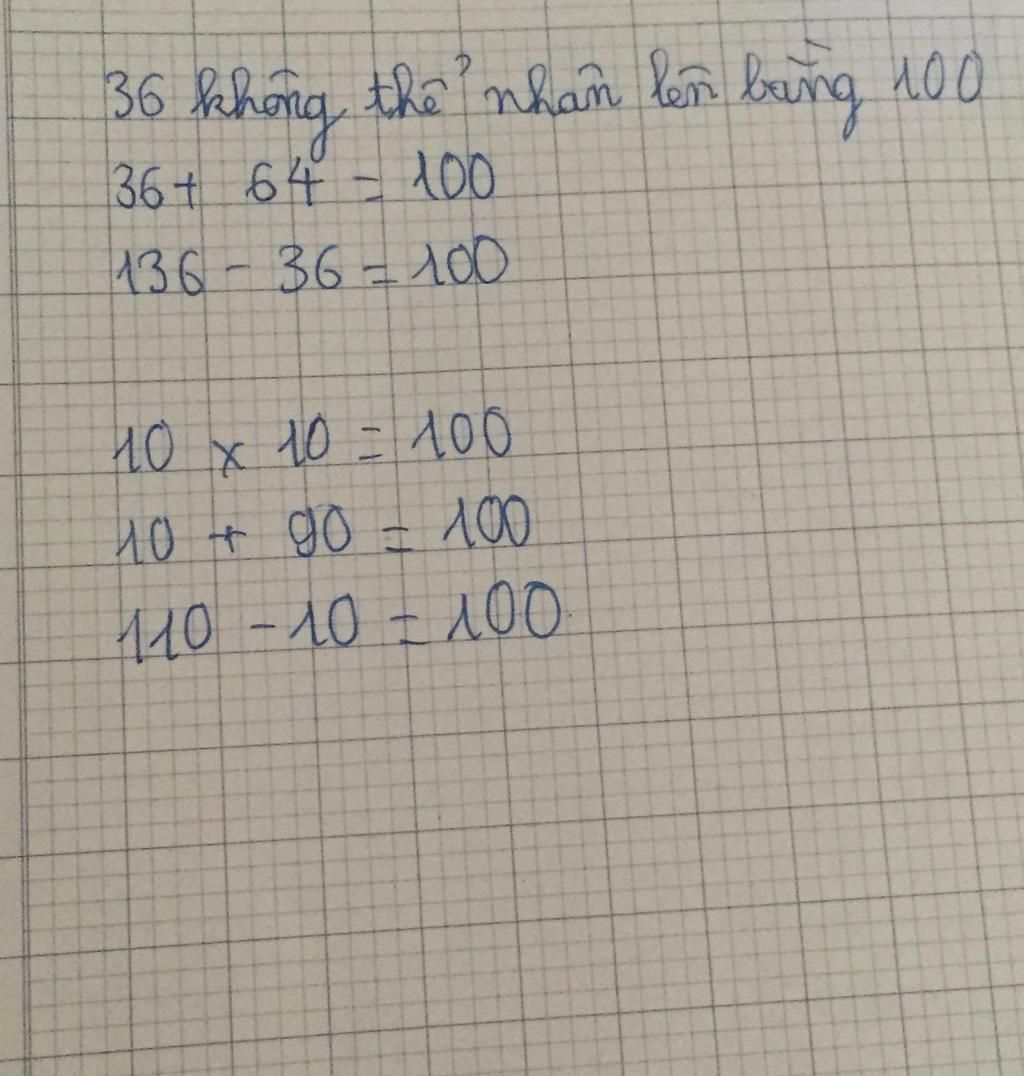 36 không thể nhân lên bằng 100
36 + 64 = 100
136 - 36 = 100
10 x 10 = 100
10 + 90 = 100
110 - 10 = 100